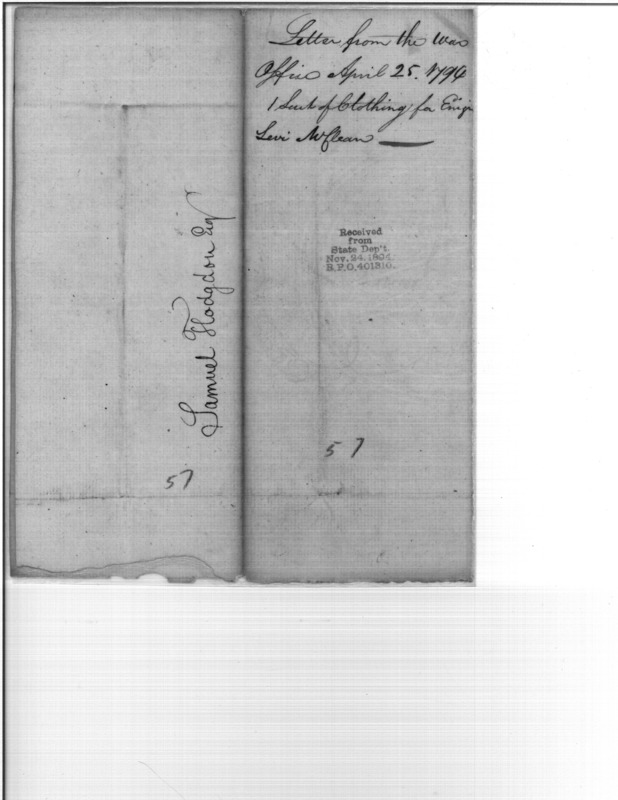 Letter from the War
Office April 25. 1794
1 Suit of Clothing for Ensign
Levi McClean
Received
from
State Dep't.
Nov. 24. 1894.
R.P.O. 401310.
Samuel Hodgdon Esq
57
57